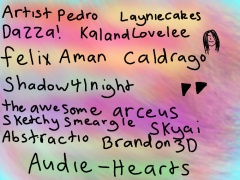 Artist Pedro Layniecakes
Dazza! KalandLovelee
felix Aman Caldrago
Shadow41night
the awesome arceus
Sketchy smeargle Skyai
Abstractio Brandon3D
Audie-Hearts